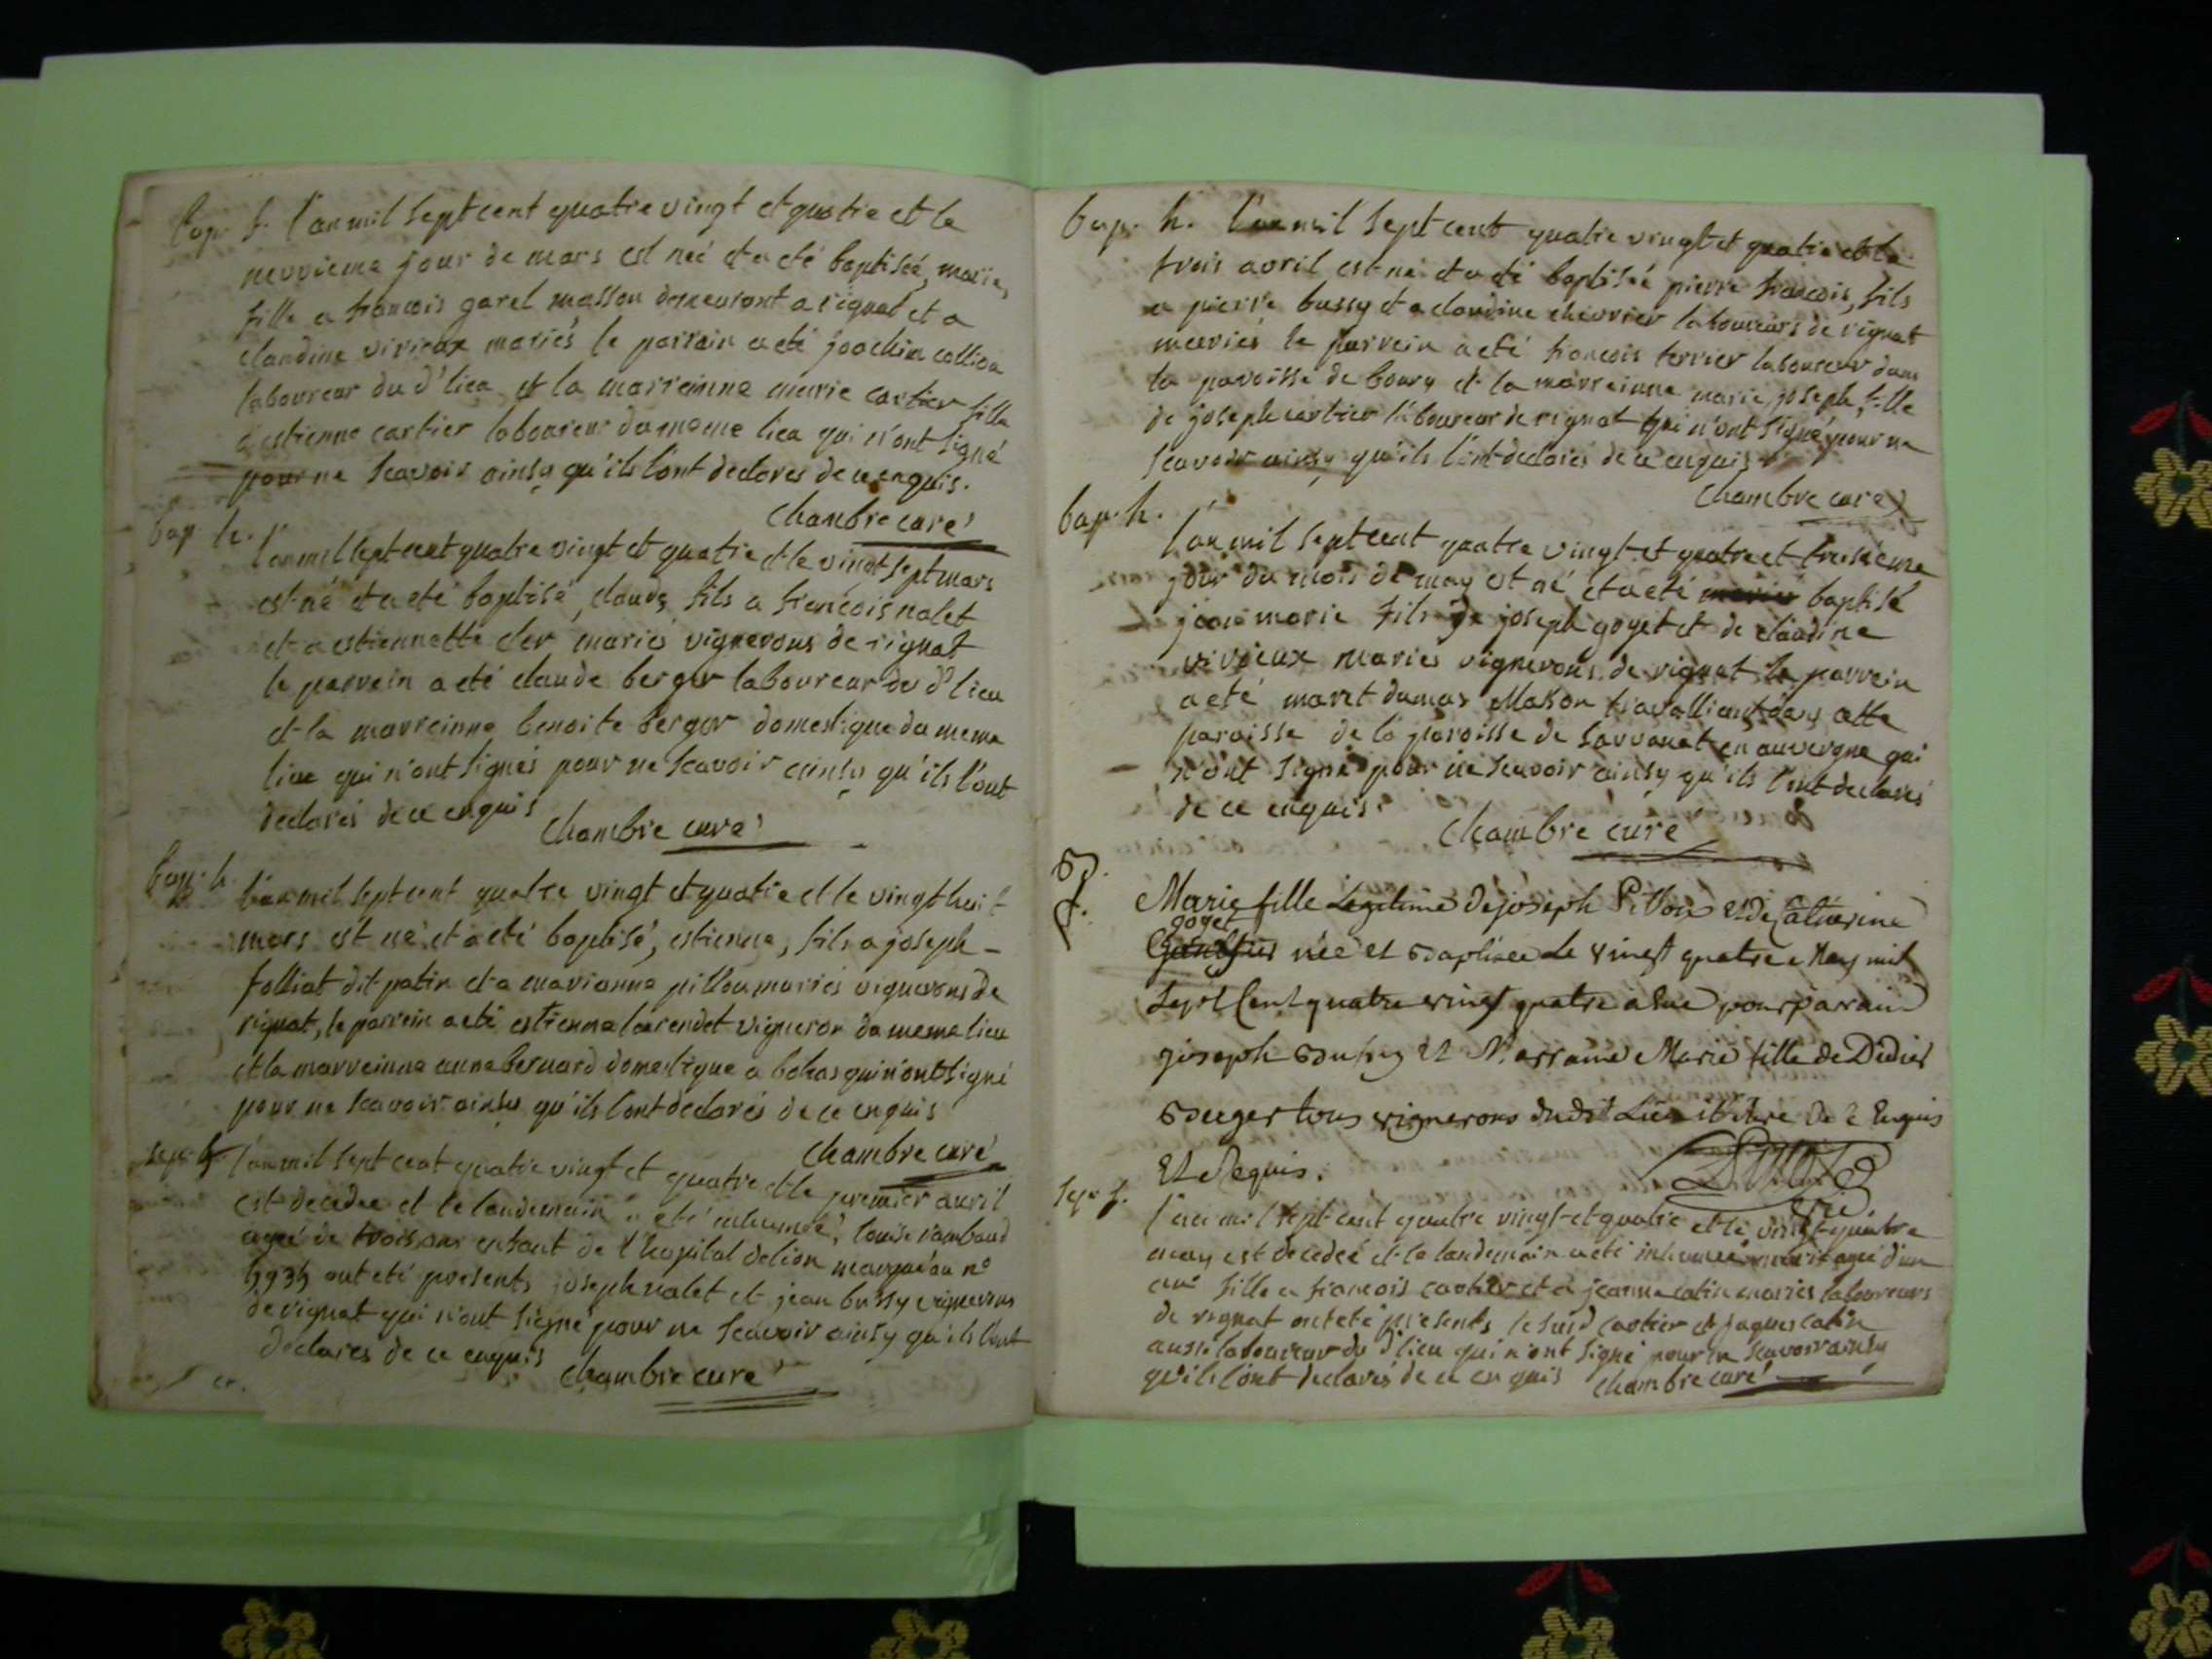 bap. f. l'an mil sept cent quatre vingt et quatre et le
neuvieme jour de mars est neé et a eté baptiseé, marie,
fille a francois garel masson demeurant a rignat et a
claudine virieux mariés le parrain a eté joachin collion
laboureur du d' lieu et la marreinne marie cartier fille
a estienne cartier laboureur du meme lieu qui n'ont signé
pour ne scavoir ainsy qu'ils l'ont declarés de ce enquis.
Chambre curé
bap h. l'an mil sept cent quatre vingt et quatre et le vingt sept mars
est né et a eté baptisé, claude fils a francois nalet
et a estiennette der mariés vignerons de rignat
le parrein a eté claude berger laboureur du d' lieu
et la marreinne benoite berger domestique du meme
lieu qui n'ont signés pour ne scavoir ainsy qu'ils l'ont
declarés de ce enquis
Chambre curé
bap. h. l'an mil sept cent quatre vingt et quatre et le vingt huit
mars est né et a eté baptisé, estienne, fils a joseph
folliat dit patin et a marianne pillon mariés vignerons de
rignat, le parrein a eté estienne vigneron du meme lieu
et la marreinne anne bernard domestique a bohas qui n'ont signé
pour ne scavoir ainsy qu'ils l'ont declarés de ce enquis
Chambre curé
sep. f. l'an mil sept cent quatre vingt et quatre et le premier avril
est decedee et le landemain a eté inhumeé, louise rambaud
ageé de trois ans enfant de l'hopital de lion marqué au n°
ont eté presents joseph nalet et jean bussy vignerons
de rignat qui n'ont signé pour ne scavoir ainsy qu'ils l'ont
declarés de ce enquis Chambre curé
bap. h. l'an mil sept cent quatre vingt et quatre et le
trois avril est né et a eté baptiseé pierre francois, fils
a pierre bussy et a claudine chevrier laboureurs de rignat
mariés le parrein a eté francois terrier laboureur dans
la paroisse de bourg et la marreinne marie joseph, fille
de joseph cartier laboureur de rignat qui n'ont signé pour ne
scavoir ainsy qu'ils l'ont declarés de ce enquis
Chambre curé
bap. h. l'an mil sept cent quatre vingt et quatre et treisieme
jour du mois de may est né et a eté baptisé
jean marie fils de joseph goyet et de claudine
virieux mariés vignerons de rignat le parrein
a eté dumas masson travalliant dans cette
paroisse de la paroisse de en auvergne qui
n'ont signé pour ne scavoir ainsy qu'ils l'ont declarés
de ce enquis.
Chambre curé
B. f. Marie fille Legitime de joseph Pillon et de Catherine
goyet
née et Baptisée le vingt quatre May mil
sept Cent quatre vingt quatre a Eue pour parain
joseph et Marraine Marie fille de Didier
Berger tous vignerons dudit Lieu De Enquis
Et Requis.
sep. f. l'an mil sept cent quatre vingt et quatre et le vingt quatre
may est decedeé et le landemain a eté inhumeé ageé d'un
an fille a francois cartier et a jeanne catin mariés laboureurs
de rignat ont eté presents le susd cartier et jaques catin
aussi laboureur du d' lieu qui n'ont signé pour ne scavoir ainsy
qu'ils l'ont declarés de ce enquis Chambre curé